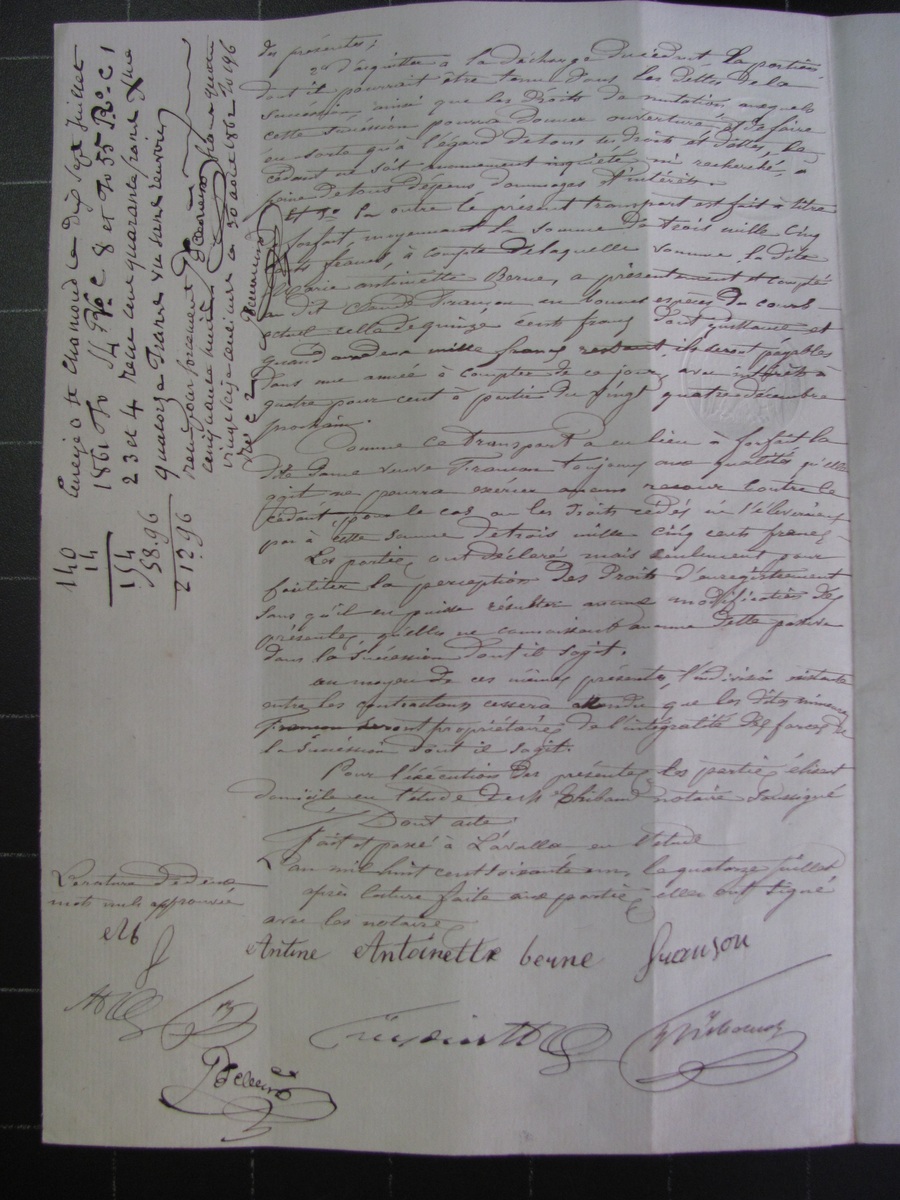 des présentes;
2° d'acquitter à la décharge du cédant, la portion
dont il pourrait être tenu dans les dettes de la
succession, ainsi que les droits de mutation auxquels
cette succession pourra donner ouverture, et de faire
en sorte qu'à l'égard de tous ces droits et dettes, le
cédant ne soit aucunement inquiété ni recherché, à
peine de tous dépens dommages et intérêts.
Et 3° En outre le présent transport est fait à titre
forfait moyennant la somme de trois mille cinq
cents francs, à compte de laquelle somme, la dite
Marie antoinette Berne, a présentement et compté
au dit Claude Françon en bonnes espèces du cours
actuel celle de quinze cents francs dont quittance et
quand aux deux mille francs restant, ils seront payables
dans une année à compter de ce jour, avec intérêts à
quatre pour cent à partir du vingt quatre décembre
prochain.
Comme ce transport a eu lieu à forfait la
dite Dame veuve Françon toujours aux qualités qu'elle
agit ne pourra exercer aucun recours contre le
cédant, pour le cas où les droits cédés ne s'élèveraient
pas à cette somme de trois mille cinq cents francs.
Les parties ont déclaré, mais seulement pour
faciliter la perception des droits d'enregistrement
sans qu'il en puisse résulter aucune modification des
présentes, qu'elles ne connaissent aucune dette passive
dans la succession dont il s'agit.
au moyen de ces mêmes présentes, l'indivision existante
entre les contractans cessera attendu que les dites mineures
Françon seront propriétaires de l'intégralité des forces de
la succession dont il s'agit.
Pour l'exécution des présentes, les parties élisent
domicile en l'étude de Me Thibaud notaire soussigné
Dont acte.
fait et passé à Lavalla en l'étude
L'an mil huit cent soixante un, le quatorze juillet
après lecture faite aux parties, elles ont signé
avec les notaires
Antine Antoinette berne françon
Thibaud
L'erature de deux
mots nuls approuvée
Enregé à St Chamond le dix sept juillet
1861 fo 54 Ro C 8 et fo 55 Ro C 1
2 3 et 4 reçu cent quarante francs
quatorze francs
cinquante huit
140
14
154
58.96
212.96